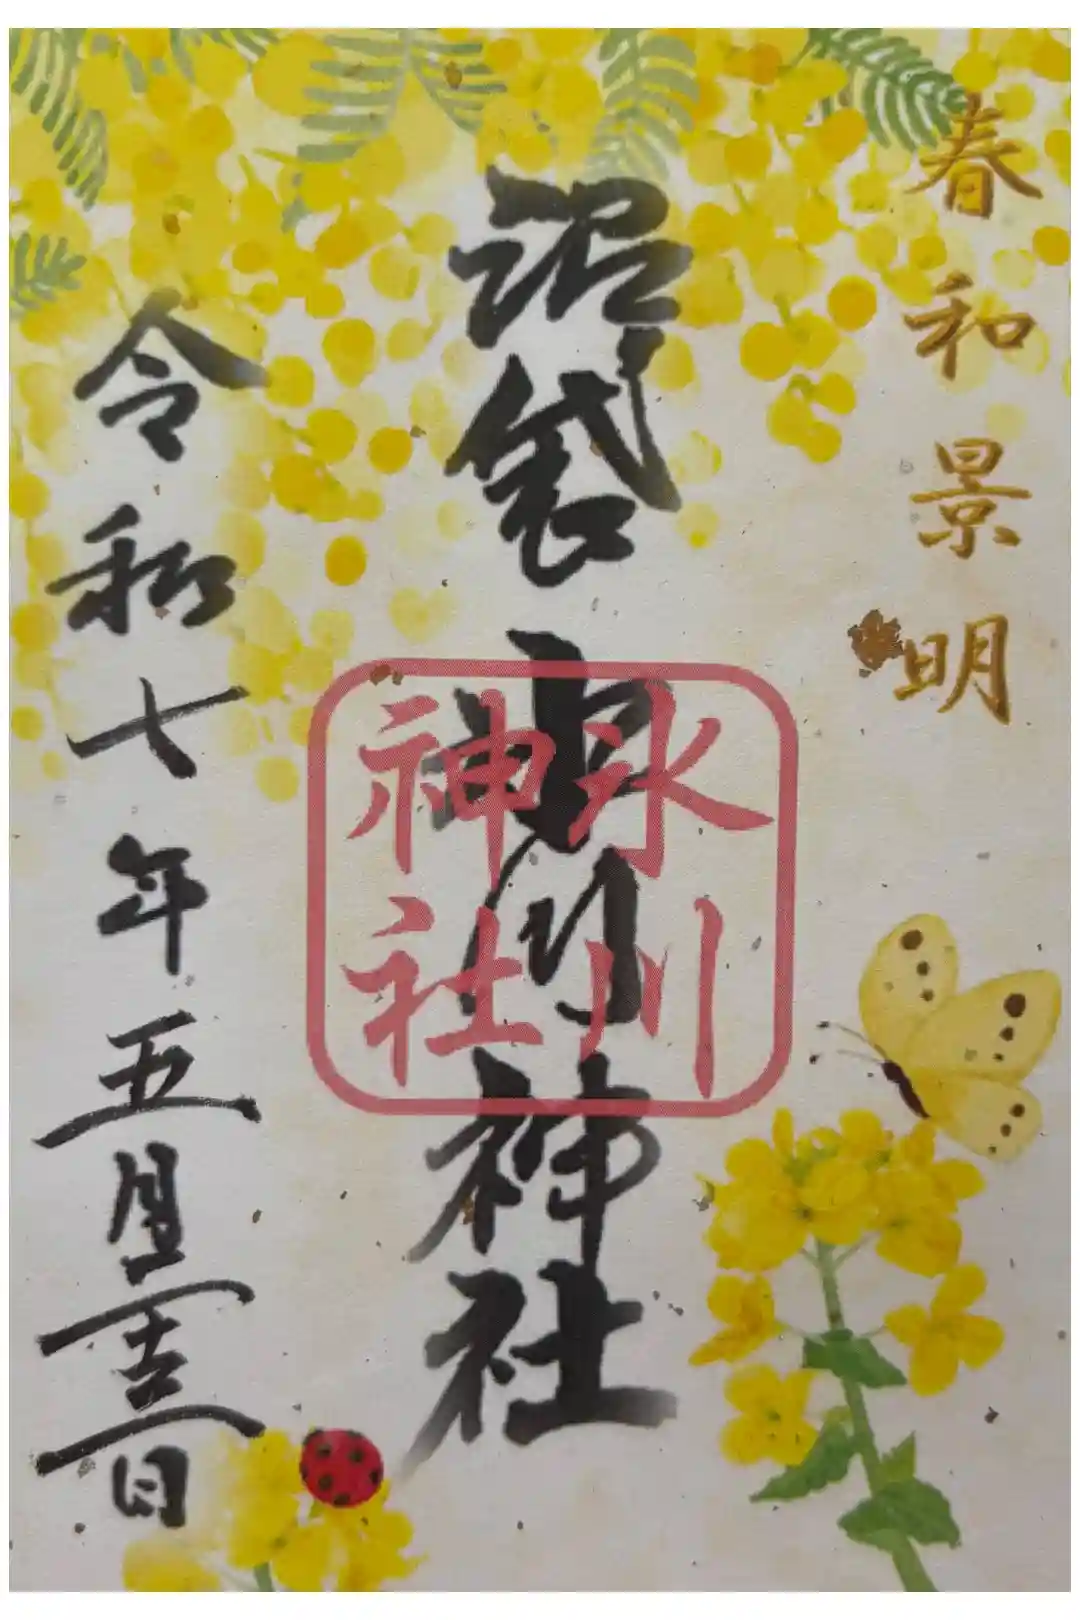 春和景明
沼袋氷川神社
氷川
神社
令和七年五月日